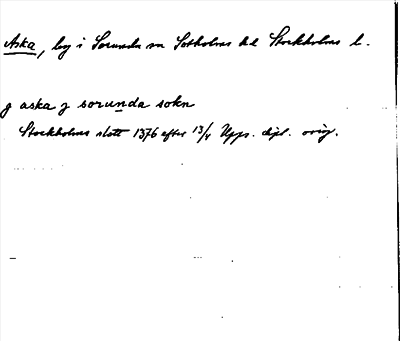 Aska, by i Sorunda sn Sotholms hd Stockholms l.
j aska j sorunda sokn
Stockholms slott 1376 efter 13/4 Upps. dipl. orig.